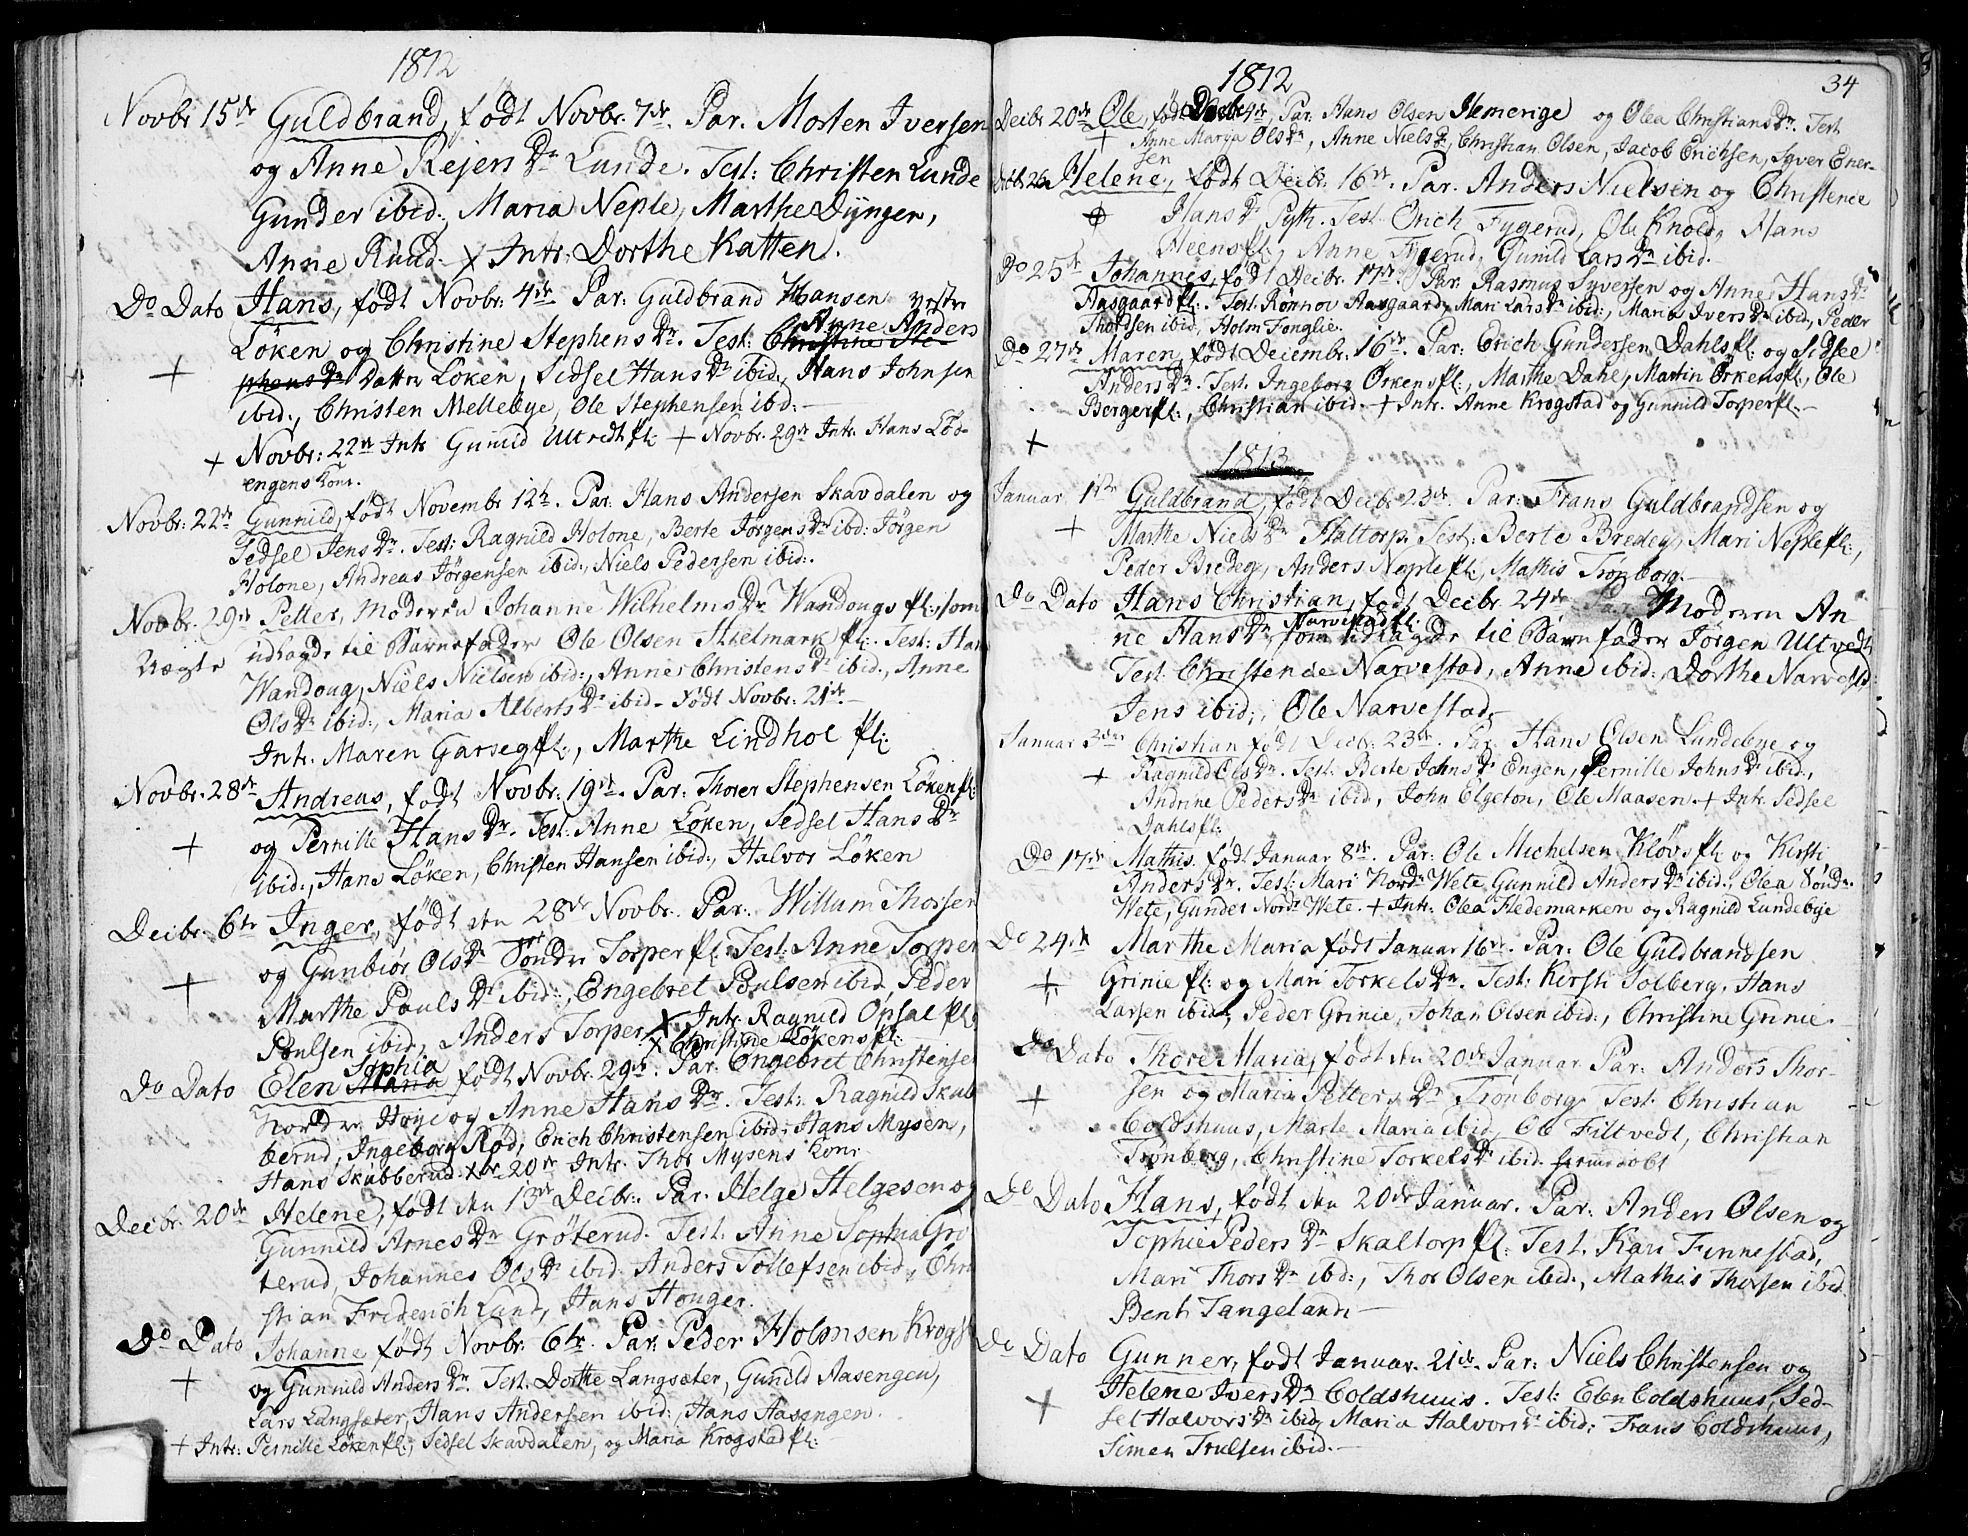 1812
Novbr 15de Guldbrand, født Novbr. 7de. Par. Morten Iversen
og Anne Rejers Dr Lunde. Test: Christen Lunde
Gunder ibid:, Maria Neple, Marthe Dÿngen,
Anne Ruud. + Intr: Dorthe Katten.
Do Dato Hans, født Novbr: 4de Par: Guldbrand Hansen Vestre
Løken og Christine Stephens Dr. Test: Christine Ste- Anne Anders
+ phens Dr Datter Løken, Sidsel Hans Dr ibid:, Hans Johnsen
ibid:, Christen Mellebye, Ole Stephensen ibd:—
+ Novbr: 22de Intr Gunild Ultvedt pl: + Novbr. 29de Intr. Hans Lød-
engens Kone.
Novbr: 22de Gunnild, født Novembr 12te. Par: Hans Andersen Skavdalen og
Sedsel Jens Dr. Test: Ragnild Holone, Berte Jørgens Dr ibd: Jørgen
Holone, Andreas Jørgensen ibid:, Niels Pedersen ibid:.
Novbr. 29de Petter, Moderen Johanne Wilhelms Dr. Wandougs pl: som
Uægte udlagde til Barnefader Ole Olsen Hielmark pl: Test: Han
Wandoug, Niels Nielsen ibid:, Anne Christens Dr ibid:, Anne
Ols Dr ibid:, Maria Alberts Dr ibid. født Novbr: 21de.—
Intr. Maren Garseg pl:, Marthe Lindhol pl:
Novbr. 28de Andreas, født Novbr. 19de. Par: Thorer Stephensen Løken pl:
+ og Pernille Hans Dr. Test: Anne Løken, Sedsel Hans Dr
ibid:, Hans Løken, Christen Hansen ibid:, Halvor Løken
Decbr. 6te Inger, født den 28de Novbr. Par. Willum Thorsen
og Gunbiør Ols Dr Søndre Torper pl: Test: Anne Torper
+ Marthe Pouls Dr ibid:, Engebret Poulsen ibid, Peder
Poulsen ibid, Anders Torper + Intr. Ragnild Opsal pl:
+ Christine Løkens pl:
Do Dato Elen Maria Sophia født Novbr. 29de. Par. Engebret Christensen
Nordre Høye og Anne Hans Dr. Test: Ragnild Skub
berud, Ingeborg Rød, Erich Christensen ibid:, Hans Mysen,
Hans Skubberud. Xbr 20de Intr. Thor Mysens Kone
Decbr. 20de Helene, født den 13de Decbr. Par. Helge Helgesen og
Gunnild Arnes Dr Grøterud. Test. Anne Sophia Grø
terud, Johannes Ols Dr ibid. Anders Tollefsen ibid., Chri
stian Friderich Lund, Hans Houger.
Do Dato Johanne født Novbr. 6te. Par. Peder Holmsen Krogst
+ og Gunnild Anders Dr. Test. Dorthe Langsæter, Gunild Aasengen,
Lars Langsæter, Hans Andersen ibid:, Hans Aasengen.
+ Intr: Pernille Løken pl:, Sedsel Skavdalen, og Maria Krogstad pl:
1812
34
Decbr 20de Ole, født Decbr 4de, Par. Hans Olsen Hemerige og Olea Christians Dr. Test
+ Anne Marja Ols Dr, Anne Niels Dr, Christian Olsen, Jacob Erichsen, Syver Ener-
sen
Helene, født Decbr. 16de. Par. Anders Nielsen og Christence
Hans Dr Pyth. Test. Erich Fygerud, Ole Knold, Hans
Heens pl:, Anne Fygerud, Gunild Lars Dr ibid.
Do 25de Johannes, født Decbr. 17de. Par. Rasmus Syversen og Anne Hans Dr
Aasgaard pl:. Test. Rønnov Aasgaard, Mari Lars Dr ibid:, Maria Ivers Dr ibid, Peder
Thordsen ibid, Holm Fonglie.
Do 27de Maren, født Decembr. 16de. Par: Erich Gundersen Dahls pl: og Sidsel
Anders Dr. Test. Ingeborg Ørkens pl:, Marthe Dahl, Martin Ørkens pl:, Ole
Berger pl:, Christian ibid. + Intr. Anne Krogstad og Gunnild Torper pl:—
+
1813
Januar 1ste Guldbrand, født Decbr 23de. Par: Frans Guldbrandsen og
+ Marthe Niels Dr Haltorp. Test: Berte Bredeg, Mari Neple pl:,
Peder Bredeg, Anders Neple pl:, Mathis Trønborg.—
Do Dato Hans Christian, født Decbr. 24de Par Moderen An-
ne Hans Dr, Narvestad pl: som udlagde til Barnefader Jørgen Ultvedt
Test. Christence Narvestad, Anne ibid:, Dorthe Narvestd:
Jens ibid:, Ole Narvestad.
Januar 3die Christian født Decbr: 23de. Par. Hans Olsen Lundebye og
+ Ragnild Ols Dr. Test. Berte Johns Dr Engen, Pernille Johns Dr ibid.,
Andrine Peders Dr ibid, John Elgeton, Ole Maasen + Intr. Sedsel
Dahls pl:
Do 17de Mathis. født Januar 8de. Par: Ole Michelsen Kløvs pl: og Kirsti
Anders Dr. Test: Mari Nordr Wete, Gunnild Anders Dr ibid:, Olea Søndr.
Wete, Gunder Nordr Wete. + Intr. Olea Hedemarken og Ragnild Lundebye
Do 24de Marthe Maria født Januar 16de. Par: Ole Guldbrandsen
+ Grinie pl: og Mari Torkels Dr. Test: Kirsti Solberg, Hans
Larsen ibid:, Peder Grinie, Johan Olsen ibid:, Christine Grinie.
Do Dato Thore Maria, født den 20de Januar. Par. Anders Thor-
+ sen og Maria Petters Dr Trønborg Test. Christian
Coldshuus, Marte Maria ibid, Ole Filtvedt, Christian
Trønborg, Christine Torkels Dr ibid. hjemedøbt
Do Dato Hans, født den 20de Januar. Par: Anders Olsen og
Sophie Peders Dr Skaltorp pl: Test. Kari Finnestad,
Mari Thors Dr ibd:, Thor Olsen ibid:, Mathis Thorsen ibid
Bent Tangeland.—
Do Dato Gunner, født Januar. 21de. Par: Niels Christensen og
+ Helene Ivers Dr Coldshuus. Test: Elen Coldshuus, Sed-
sel Halvors Dr ibid, Maria Halvors Dr ibid: Frans Coldshuus,
Simen Trulsen ibid.—